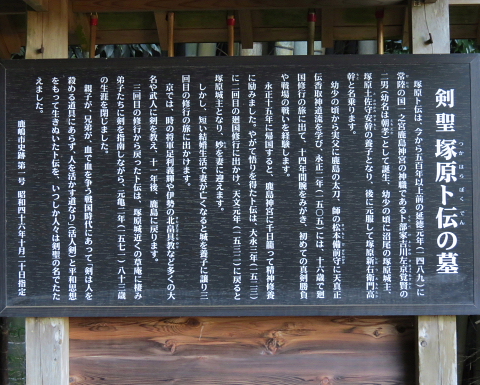 剣聖 塚原卜伝の墓
つかはらぼくでん
塚原卜伝は、今から五百年以上前の延徳元年(一四八九)に
常陸の国一之宮鹿島神宮の神職である卜部家吉川左京覚賢の
二男(幼名は朝孝)として誕生、幼少の頃に沼尾の塚原城主、
塚原土佐守安幹の養子となり、後に元服して塚原新右衛門高
幹と名乗ります。
幼少の頃から実父に鹿島の太刀、師の松本備前守に天真正
伝香取神道流を学び、永正二年(一五〇五)には、十六歳で廻
国修行の旅に出て、十四年間腕をみがき、初めての真剣勝負
や戦場の戦いを経験します。
永正十五年に帰国すると、鹿島神宮に千日籠って精神修養
に励みました。やがて悟りを得た卜伝は、大永三年(一五二三)
に二回目の廻国修行に出かけ、天文元年(一五三二)に戻ると
塚原城主となり、妙を妻に迎えます。
しかし、短い結婚生活で妻が亡くなると城を養子に譲り三
回目の修行の旅に出かけます。
京では、時の将軍足利義輝や伊勢の北畠具教など多くの大
名や武人に剣を教え、十一年後、鹿島に戻ります。
三回目の修行から戻った卜伝は、塚原城近くの草庵に棲み
弟子たちに剣を指南しながら、元亀二年(一五七一)八十三歳
の生涯を閉じました。
親子が、兄弟が、血で血を争う戦国時代にあって、剣は人を
殺める道具にあらず、人を活かす道なり(活人剣)と平和思想
をもって生きぬいた卜伝を、いつしか人々は剣聖の名でたた
えました。
鹿嶋市史跡 第一号 昭和四十六年十月二十日指定